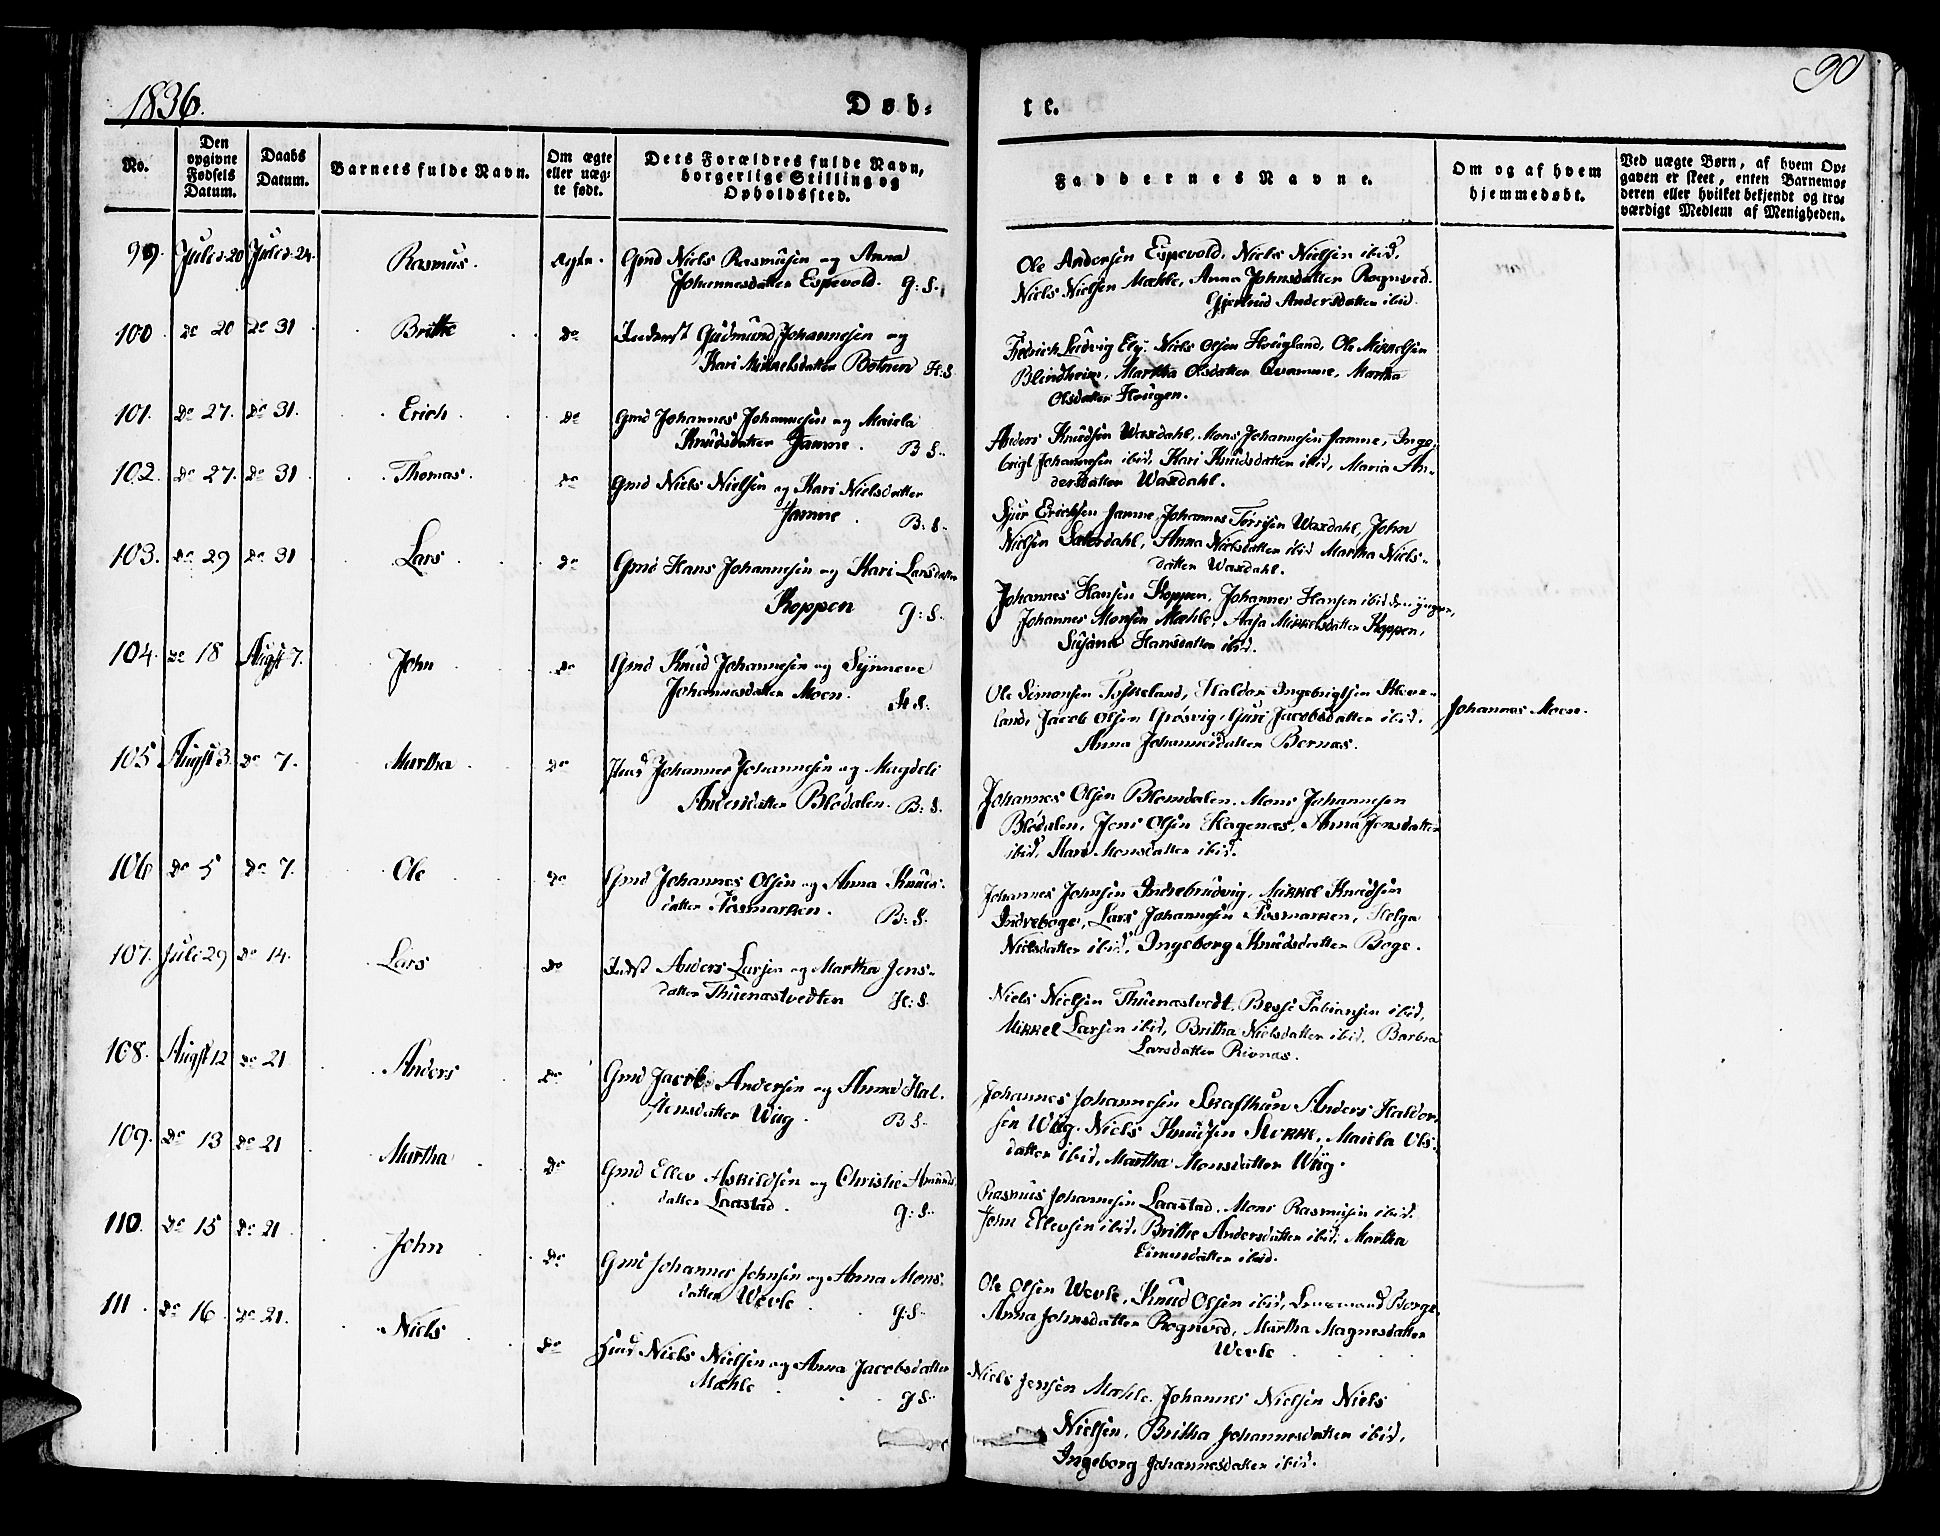 1836.
Døb-
te.
90
No.
Den opgivne Fødsels Datum.
Daabs Datum.
Barnets fulde Navn.
Om ægte eller uægte født.
Dets Forældres fulde Navn, borgerlige Stilling og Opholdsfted.
Faddernes Navne.
Om og af hvem hjemmedøbt.
Ved uægte Børn, af hvem Opgaven er skeet, enten Barnemoderen eller hvilket bekjendt og troværdigt Medlem af Menigheden.
99. Juli d. 20 Juli d. 24. Rasmus. ægte. Gmd Niels Rasmusen og Anna
Johannesdatter Espevold. G: S.
Ole Andersen Espevold, Niels Nielsen ibid,
Niels Nielsen Mæhle, Anna Johnsdatter Rognved.
Gjertrud Andersdatter ibid.
100 do 20 do 31 Brithe do Inderst Gudmund Johannesen og
Kari Mikkelsdatter Botnen H: S.
Fredrich Ludvig Ely Niels Olsen Hougland, Ole Mikkelsen
Blindheim, Martha Olsdatter Qvamme, Martha
Olsdatter Hougen.
101. do 27. do 31. Erich do Gmd Johannes Johannesen og Maiela
Knudsdatter Jamne. B S.
Anders Knudsen Waxdahl, Mons Johannesen Jamne, Inge-
brigt Johannesen ibid, Kari Knudsdatter ibid, Maria An-
dersdatter Waxdahl.
102. do 27. do 31 Thomas. do Gmd Niels Nielsen og Kari Nielsdatter
Jamne. B: S.
Sjur Erichsen Jamne, Johannes Waxdahl, John
Nielsen Anna Nielsdatter ibid Martha Niels-
datter Waxdahl.
103. do 29 do 31 Lars do Gmd Hans Johannesen og Kari Larsdatter
Koppen G: S.
Johannes Hansen Koppen, Johannes Hansen ibid den yngre,
Johannes Monsen Mæhle, Aasa Mikkelsdatter Koppen,
Susanna Hansdatter ibid.
104. do 18 Augst 7. John do Gmd Knud Johannesen og Synneve
Johannesdatter Moen. H S.
Ole Simonsen Tyskeland, Haldor Ingebrigtsen Kleve-
land, Jacob Olsen Grøsvig, Guri Jacobsdatter ibid.
Anna Johannesdatter Bernæs.
Johannes Moen.
105 Augst 3. do 7. Martha do Johannes Johannesen og Magdeli
Andersdatter Bledalen. B: S.
Johannes Olsen Blomdalen. Mons Johannesen
Bledalen, Jens Olsen Hagenæs, Anna Jensdatter
ibid, Kari Monsdatter ibid.
106 do 5 do 7. Ole do Gmd Johannes Olsen og Anna Knuds-
datter Fosmarken. B: S.
Johannes Johnsen Indrebrudvig, Mikkel Knudsen
Indreboge, Lars Johannesen Fosmarken, Helga
Nielsdatter ibid, Ingeborg Knudsdatter Boge.
107. Juli 29 do 14. Lars do Indst Anders Larsen og Martha Jens-
datter Thuenæstvedten H: S.
Niels Nielsen Thuenæstvedt, Fabiansen ibid,
Mikkel Larsen ibid, Britha Nielsdatter ibid. Barbra
Larsdatter Rivnæs.
108. Augst 12 do 21 Anders do Gmd Jacob Andersen og Anna Hal-
stensdatter Wiig. B S.
Johannes Johannesen Skafthun Anders Haldor-
sen Wiig. Niels Knudsen Maiela Ols-
datter ibid, Martha Monsdatter Wiig.
109. do 13 do 21 Martha do Gmd Ellev Askildsen og Christie Amunds
datter Laastad. G: S.
Rasmus Johannesen Laastad. Mons Rasmusen ibid.
John Ellevsen ibid. Brithe Andersdatter ibid, Martha
datter ibid.
110. do 15 do 21 John do Gmd Johannes Johnsen og Anna Mons-
datter Wevle. G: S.
Ole Olsen Wevle, Knud Olsen ibid, Lensmand Borge
Anna Johnsdatter Rognved, Martha Magnesdatter
Wevle
111. do 16 do 21. Niels do Niels Nielsen og Anna Jacobsdatter
Mæhle G S.
Niels Jensen Mæhle. Johannes Nielsen Niels
Nielsen, Britha Johannesdatter ibid,
Ingeborg Johannesdatter ibid.